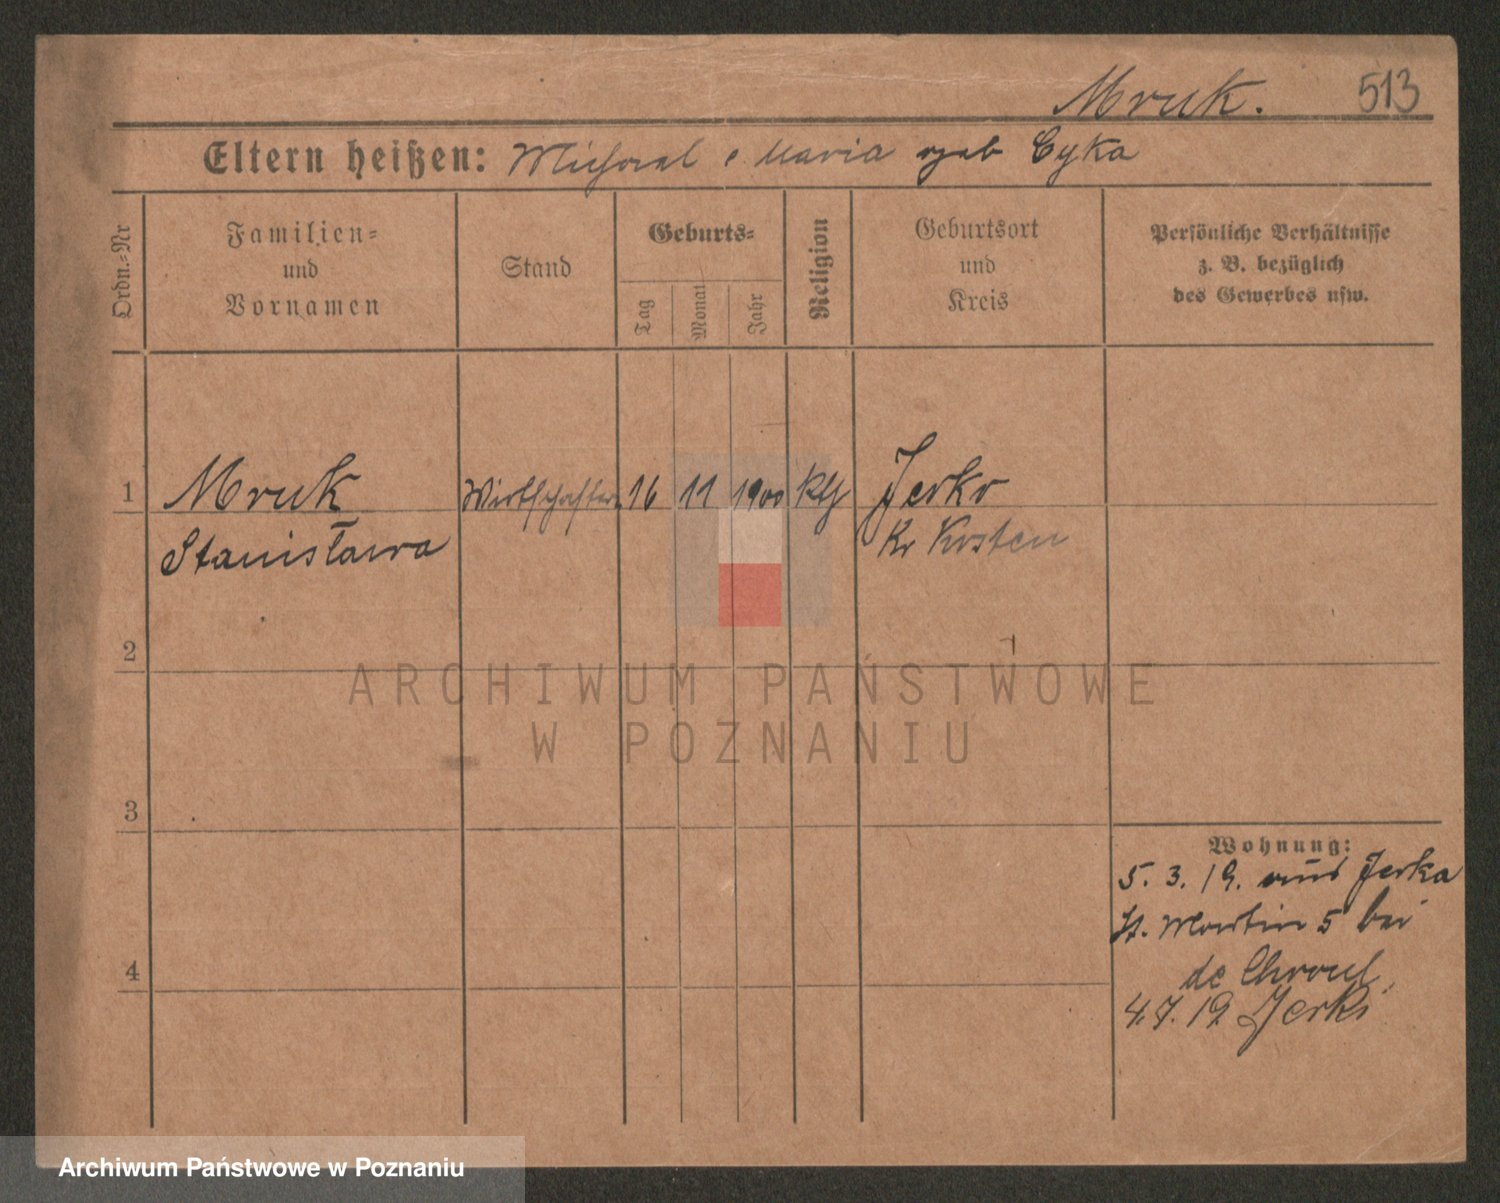 Mruk. 513
Eltern heißen: Michael e Maria geb Cyka
Ordn.-Nr
Familien-
und
Vornamen
Stand
Geburts-
Tag
Monat
Jahr
Religion
Geburtsort
und
Kreis
Persönliche Verhältnisse
z. B. bezüglich
des Gewerbes usw.
1 Mruk 16 11 1900 kth
Stanisława Kr Kosten
2
3
4
Wohnung:
5. 3. 19. aus Jerka
St. Martin 5 bei
de
4.7.19 Jerki
ARCHIWUM PAŃSTWOWE
W POZNANIU
Archiwum Państwowe w Poznaniu